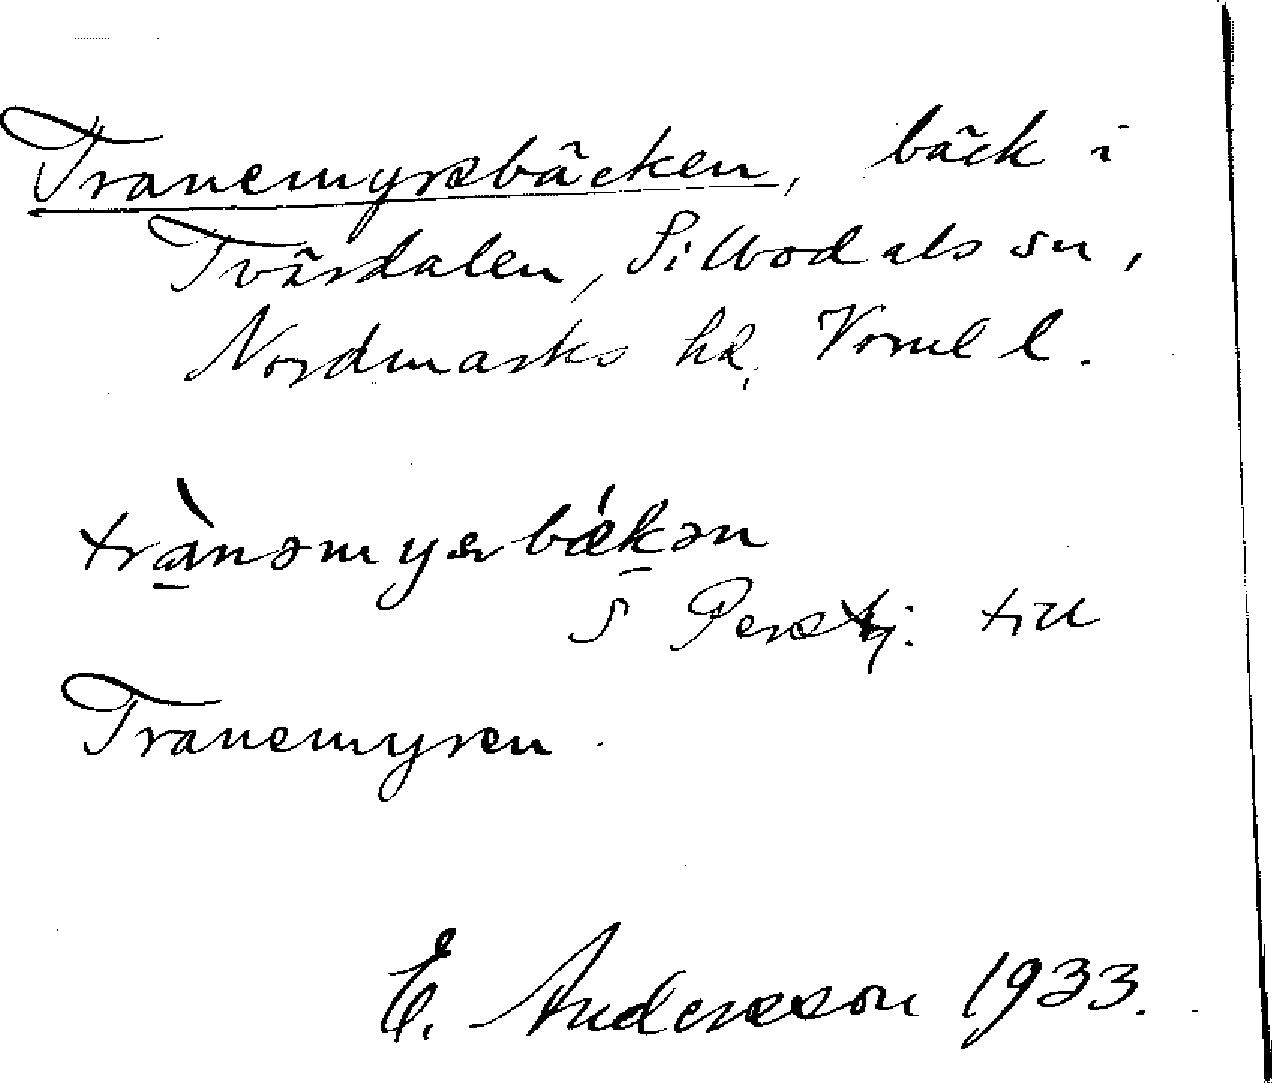 Tranemyrsbäcken, bäck i
Tvärdalen, Silbodals sn,
Nordmarks hd, Vrml l.
trànəmysrbǽkən
S Perstj. till
Tranemyren.
E. Andersson 1933.